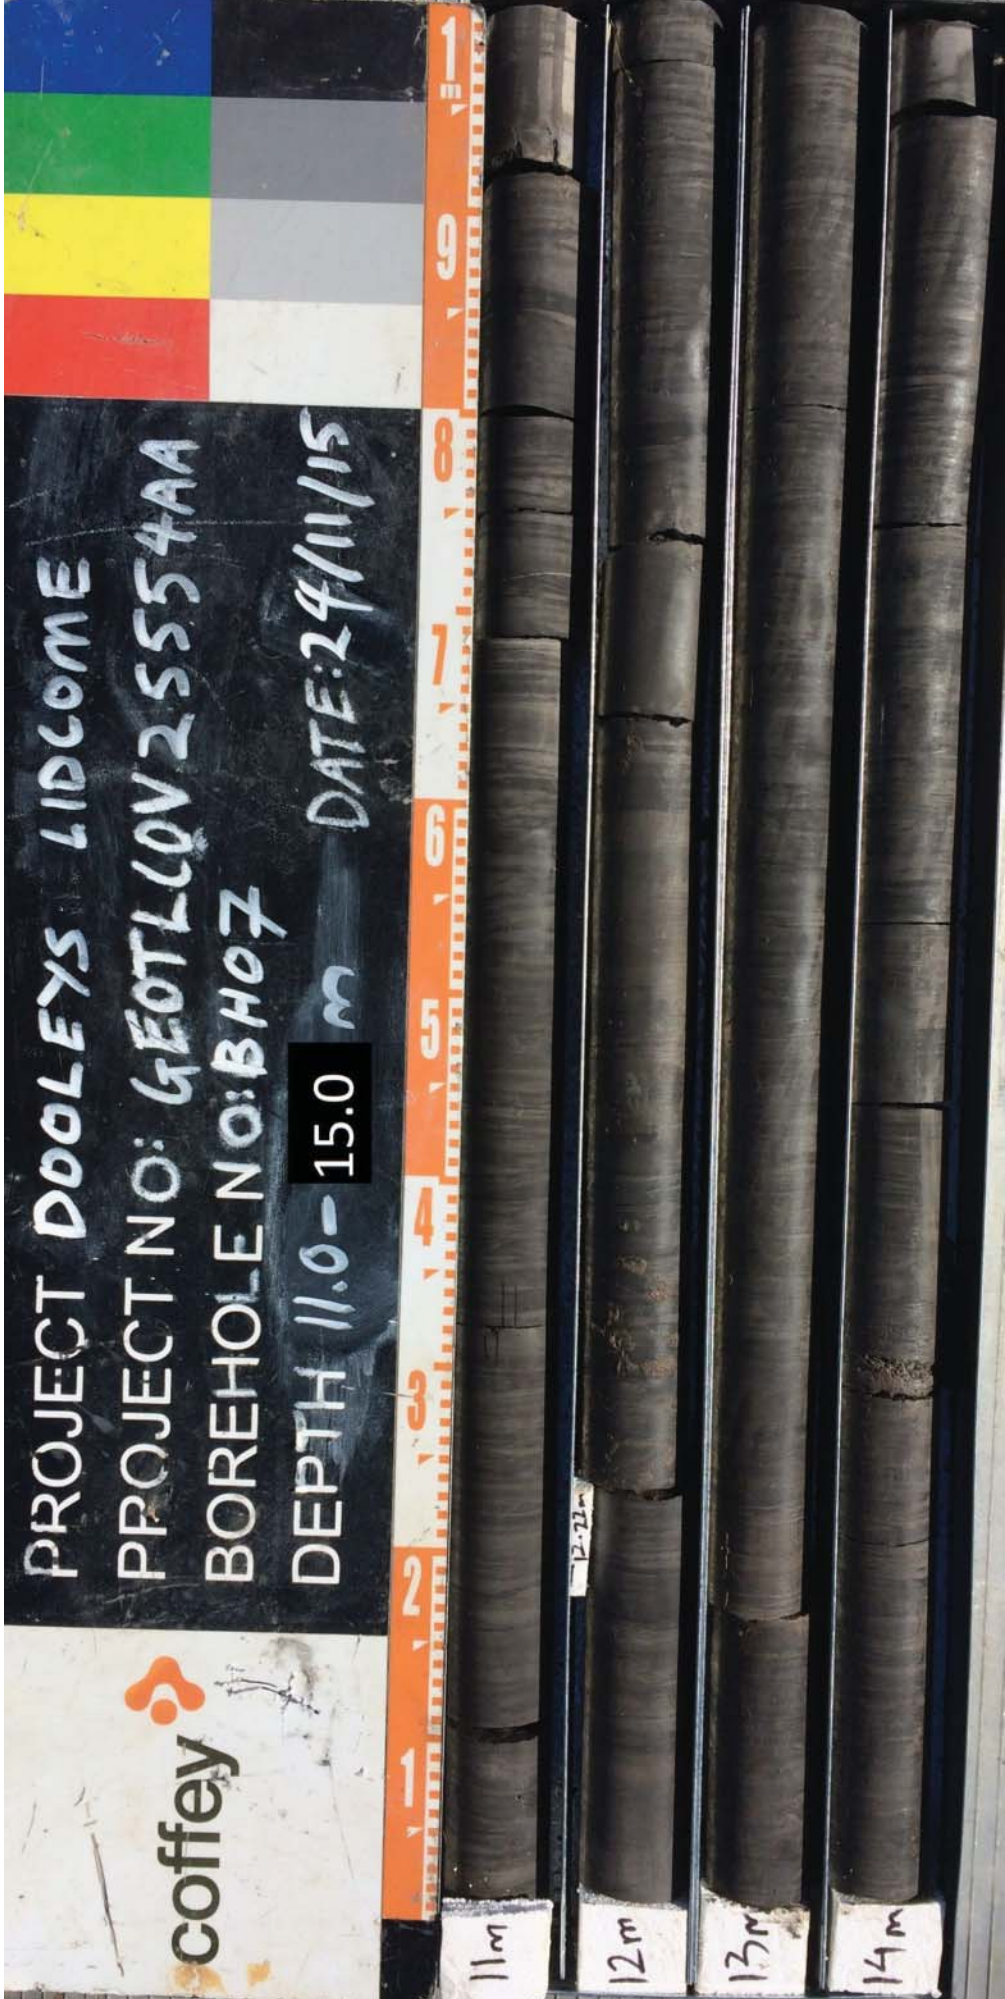 PROJECT DOOLEYS LIDCOME
PROJECT NO: GEOTLCOV25554AA
BOREHOLE NO: BH07
DEPTH 11.0 - 15.0 m DATE: 24/11/15
coffey
1 2 3 4 5 6 7 8 9 1m
11m
12m
12.22m
13m
14m